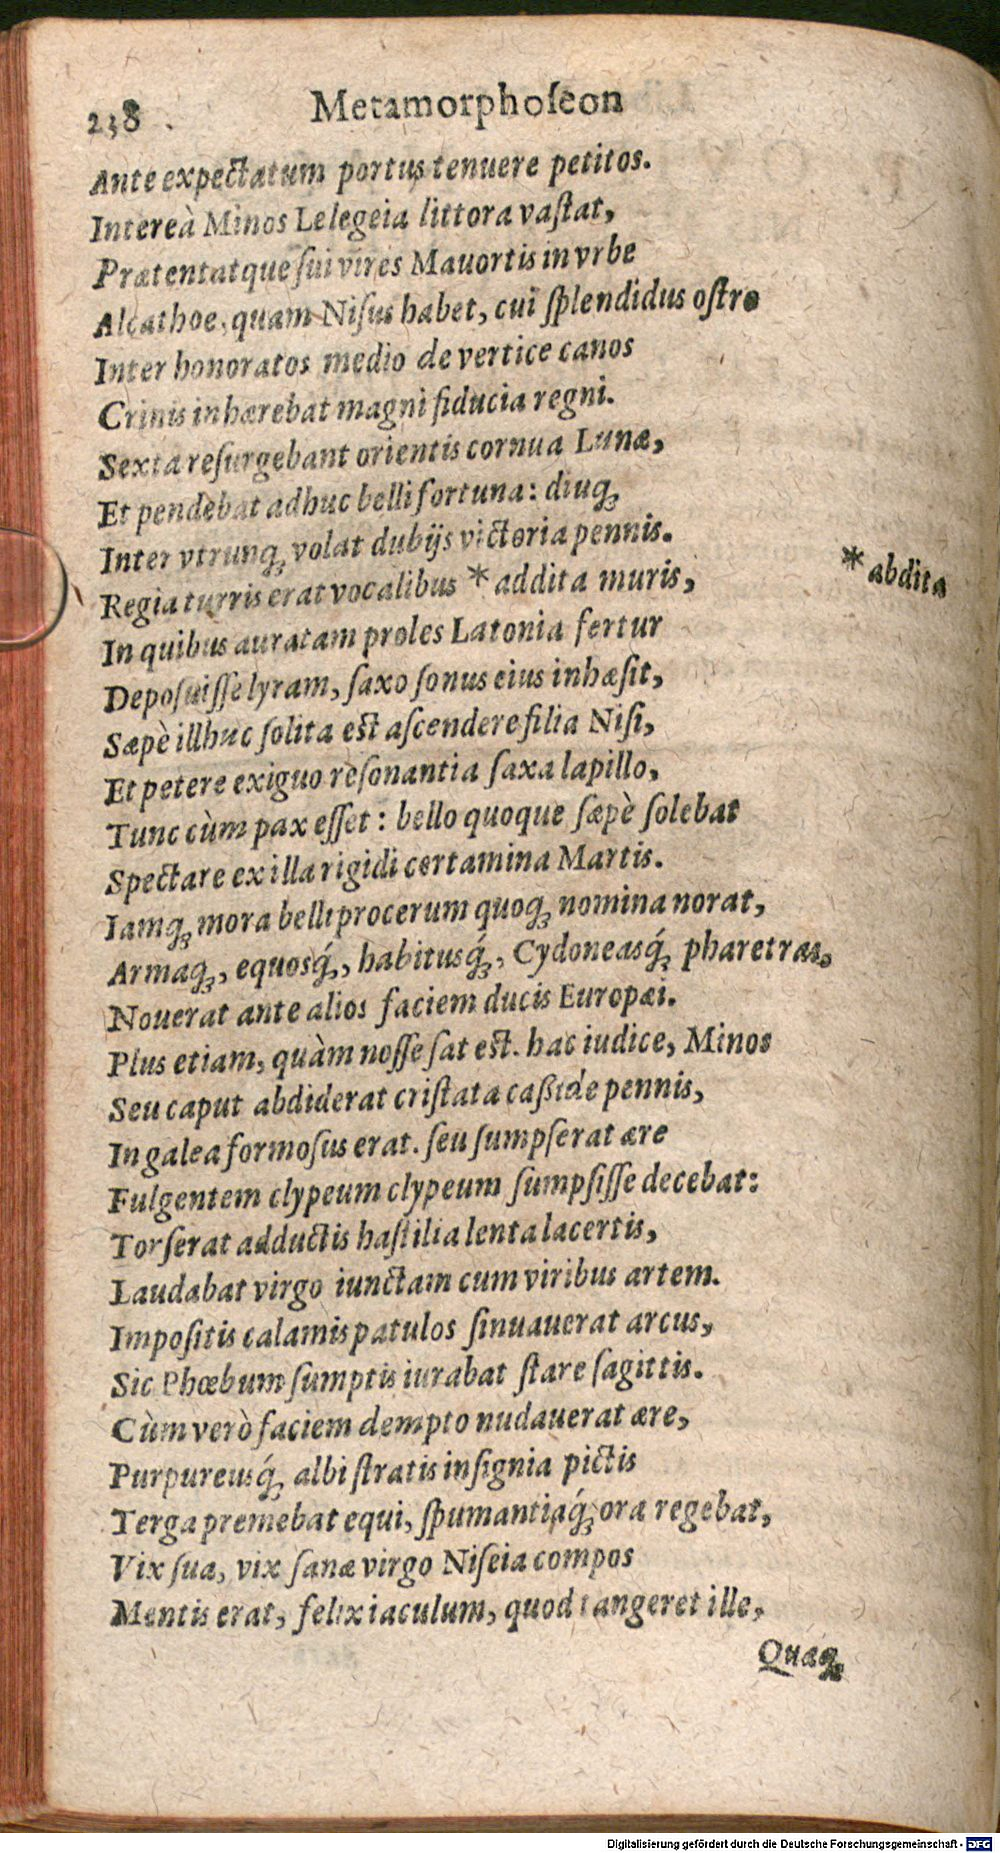 238 Metamorphoſeon
Ante expectatum portus tenuere petitos.
Intereà Minos Lelegeia littora vaſtat,
Prætentatque ſui vires Mauortis in vrbe
Alcathoe, quam Niſus habet, cui ſplendidus oſtro
Inter honoratos medio de vertice canos
Crinis inhærebat magni fiducia regni.
Sexta reſurgebant orientis cornua Lunæ,
Et pendebat adhuc belli fortuna: diuq́ꝫ
Inter vtrunqꝫ volat dubijs victoria pennis.
Regia turris erat vocalibus * addita muris,
* abdita
In quibus auratam proles Latonia fertur
Depoſuiſſe lyram, ſaxo ſonus eius inhæſit,
Sæpè illhuc ſolita est aſcendere filia Niſi,
Et petere exiguo reſonantia ſaxa lapillo,
Tunc cùm pax eſſet: bello quoque ſæpè ſolebat
Spectare ex illa rigidi certamina Martis.
Iamqꝫ mora belli procerum quoqꝫ nomina norat,
Armaqꝫ, equosq́ꝫ, habitusq́ꝫ, Cydoneasq́ꝫ pharetras.
Nouerat ante alios faciem ducis Europæi.
Plus etiam, quàm noſſe ſat est. hac iudice, Minos
Seu caput abdiderat criſtata caßide pennis,
In galea formoſus erat. ſeu ſumpſerat ære
Fulgentem clypeum clypeum ſumpſiſſe decebat:
Torſerat adductis haſtilia lenta lacertis,
Laudabat virgo iunctam cum viribus artem.
Impoſitis calamis patulos ſinuauerat arcus,
Sic Phœbum ſumptis iurabat ſtare ſagittis.
Cùm verò faciem dempto nudauerat ære,
Purpureusq́ꝫ albi ſtratis inſignia pictis
Terga premebat equi, ſpumantiaq́ꝫ ora regebat,
Vix ſua, vix ſanæ virgo Niſeia compos
Mentis erat, felix iaculum, quod tangeret ille,
Quæqꝫ
Digitalisierung gefördert durch die Deutsche Forschungsgemeinschaft - DFG